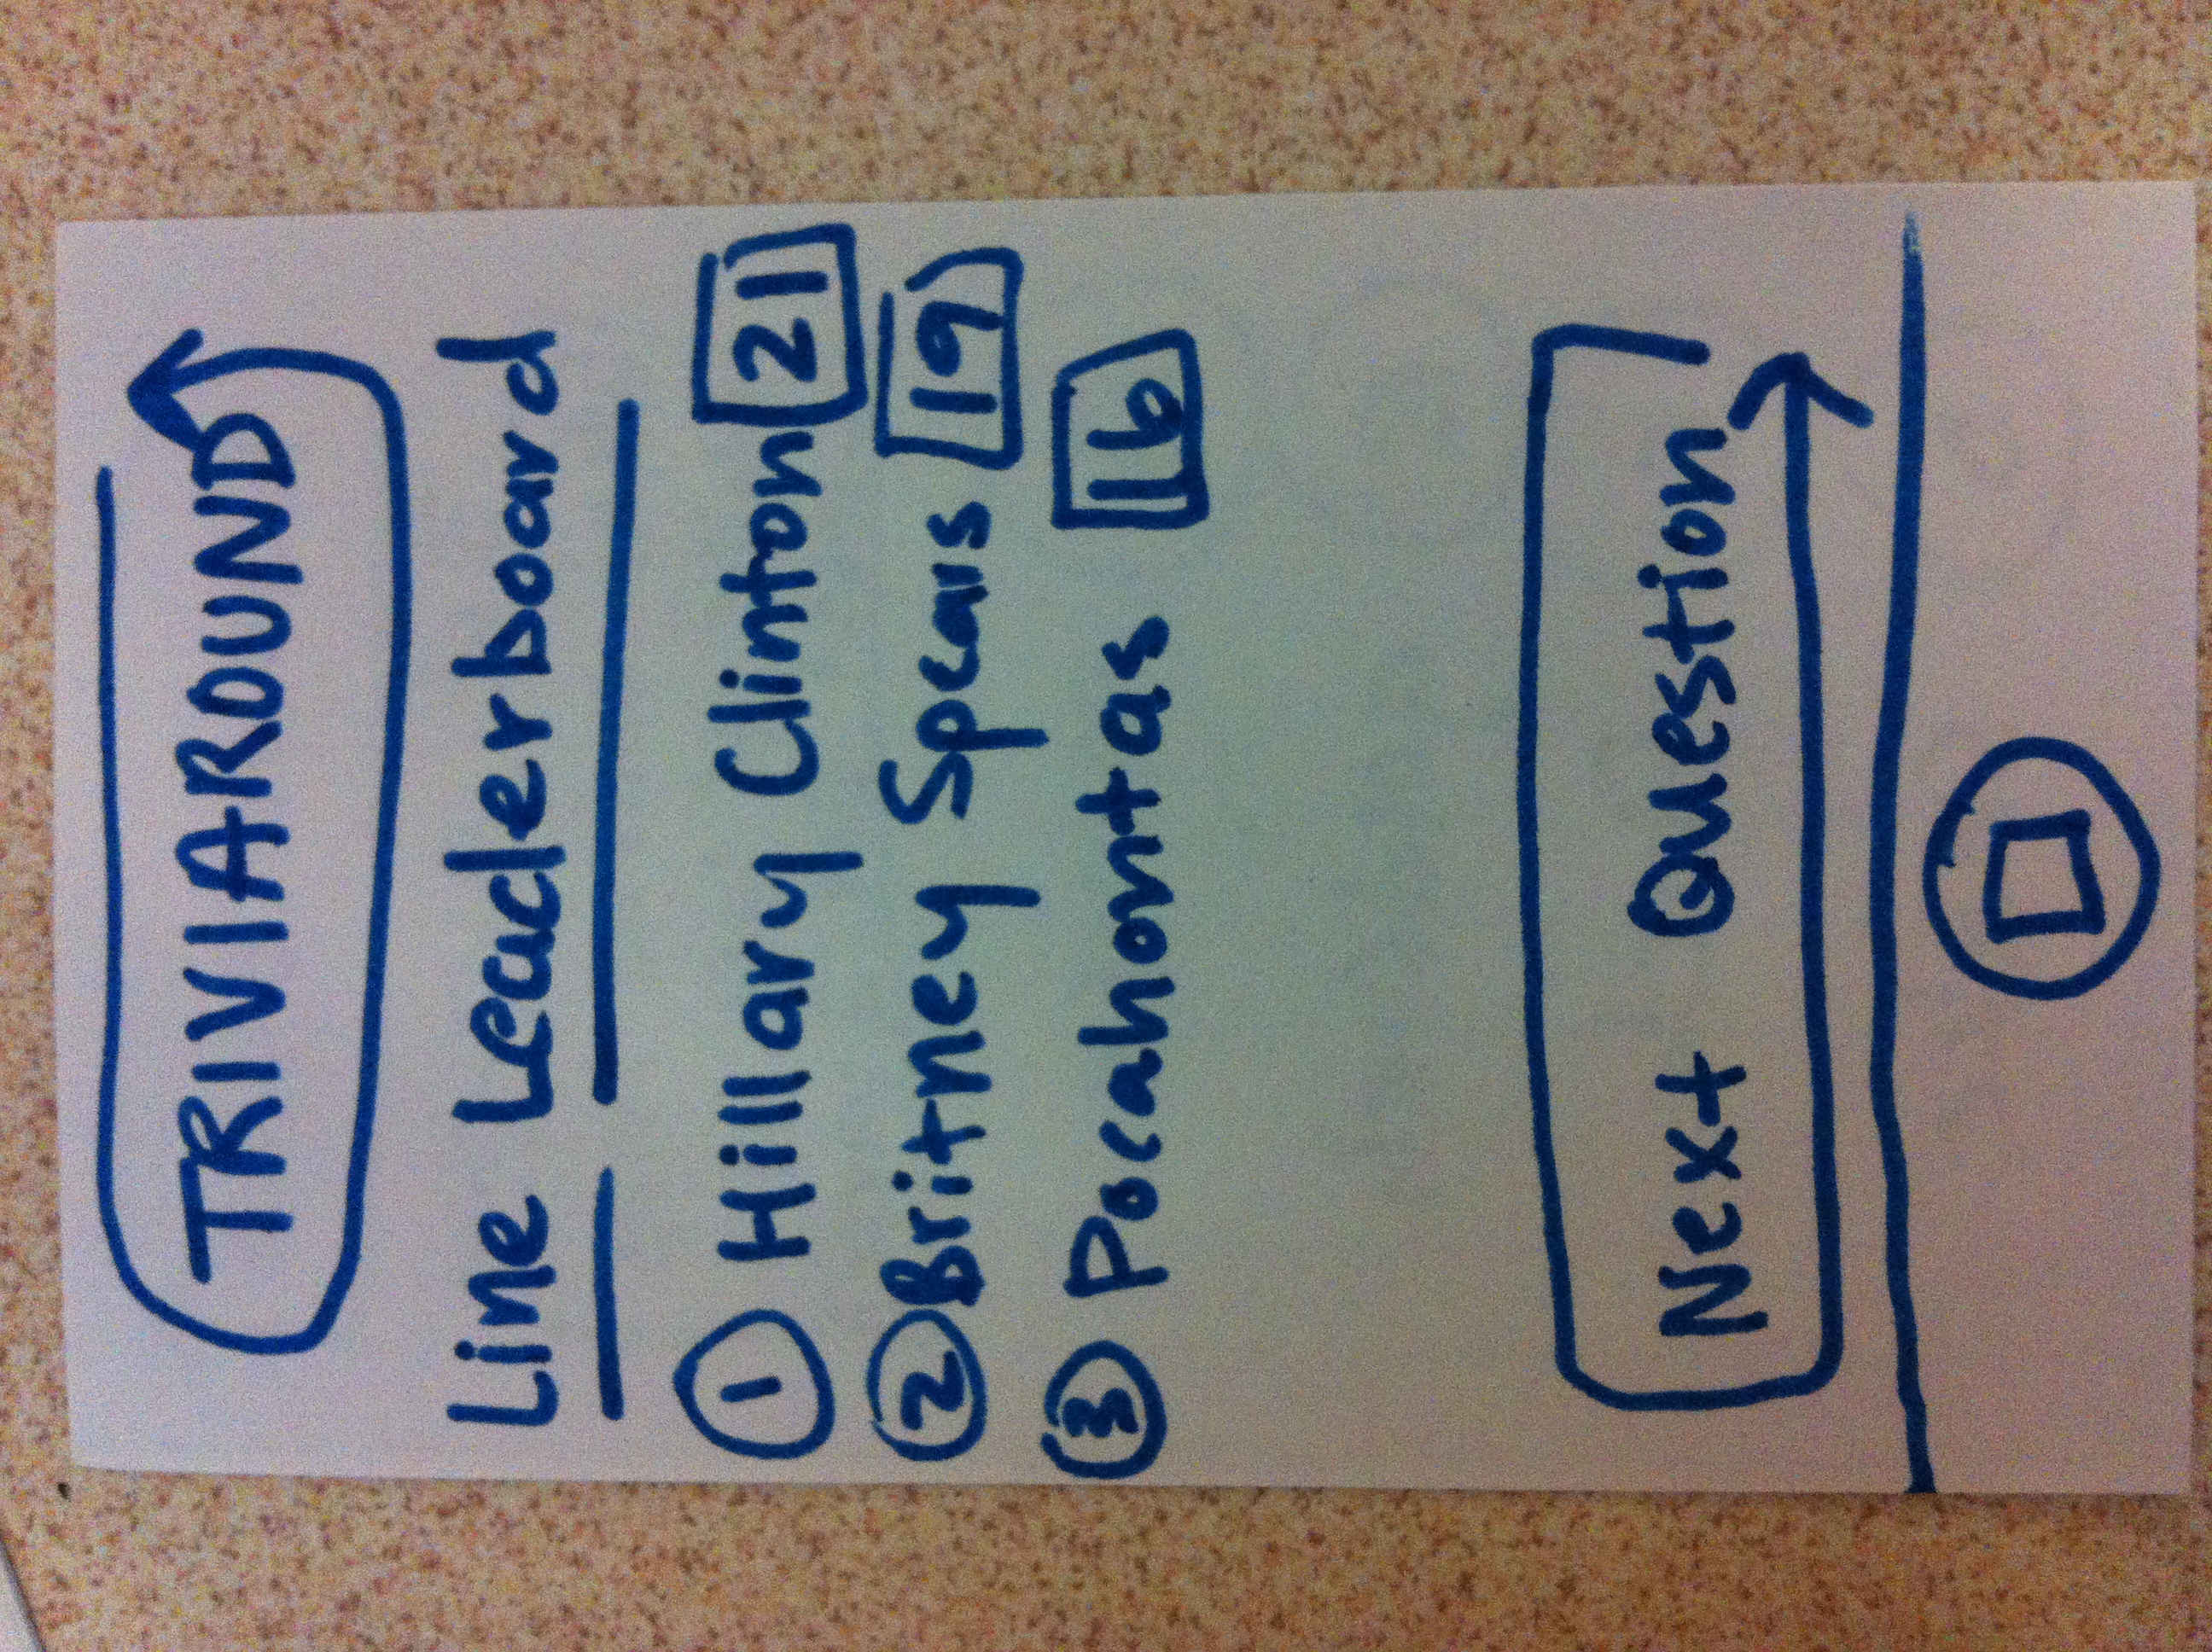 TRIVIAROUND
Line Leaderboard
1 Hillary Clinton 21
2 Britney Spears 19
3 Pocahontas 16
Next Question